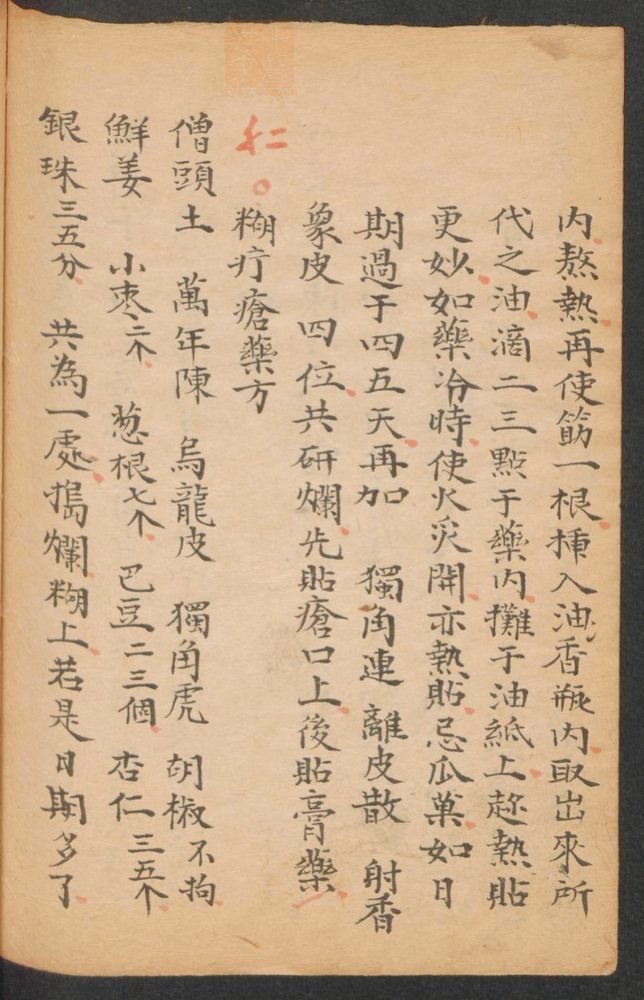 内熬熱再使筯一根揷入油香瓶内取出來所
代之油滴二三點于藥内攤于油紙上趂熱貼
更妙如藥冷時使火炙開亦熱貼忌瓜菓如日
期過于四五天再加 獨角連 離皮散 射香
象皮 四位共研爛先貼瘡口上後貼膏藥
仁。 糊疔瘡藥方
僧頭土 萬年陳 烏龍皮 獨角虎 胡椒不拘
鮮姜 小枣二个 葱根七个 巴豆二三個 杏仁三五个
銀珠三五分 共為一處搗爛糊上若是日期多了